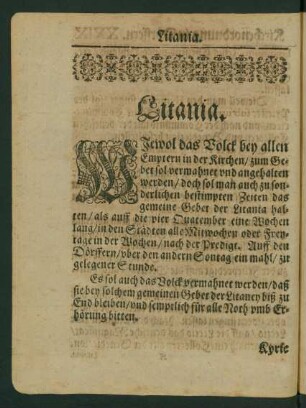 Litania.
Litania.
WJewol das Volck bey allen
Emptern in der Kirchen/ zum Ge-
bet sol vermahnet vnd angehalten
werden/ doch sol man auch zu son-
derlichen bestimpten Zeiten das
gemeine Gebet der Litania hal-
ten/ als auff die vier Quatember eine Wochen
lang/ in den Städten alle Mitwochen oder Frey-
tage in der Wochen/ nach der Predigt. Auff den
Dörffern/ vber den andern Sontag ein mahl/ zu
gelegener Stunde.
Es sol auch das Volck vermahnet werden/ daß
sie bey solchem gemeinen Gebet der Litaney biß zu
End bleiben/ vnd sempelich für alle Noth vmb Er-
hörung bitten.
Kyrie